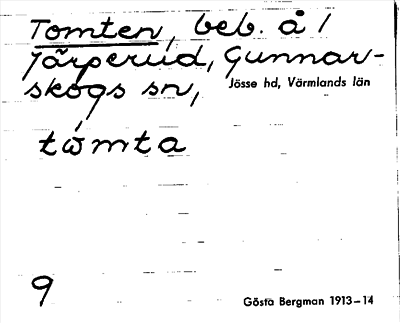 Tomten, beb. å 1
Järperud, Gunnar-
skogs sn, Jösse hd, Värmlands län
tòmta
9
Gösta Bergman 1913–14